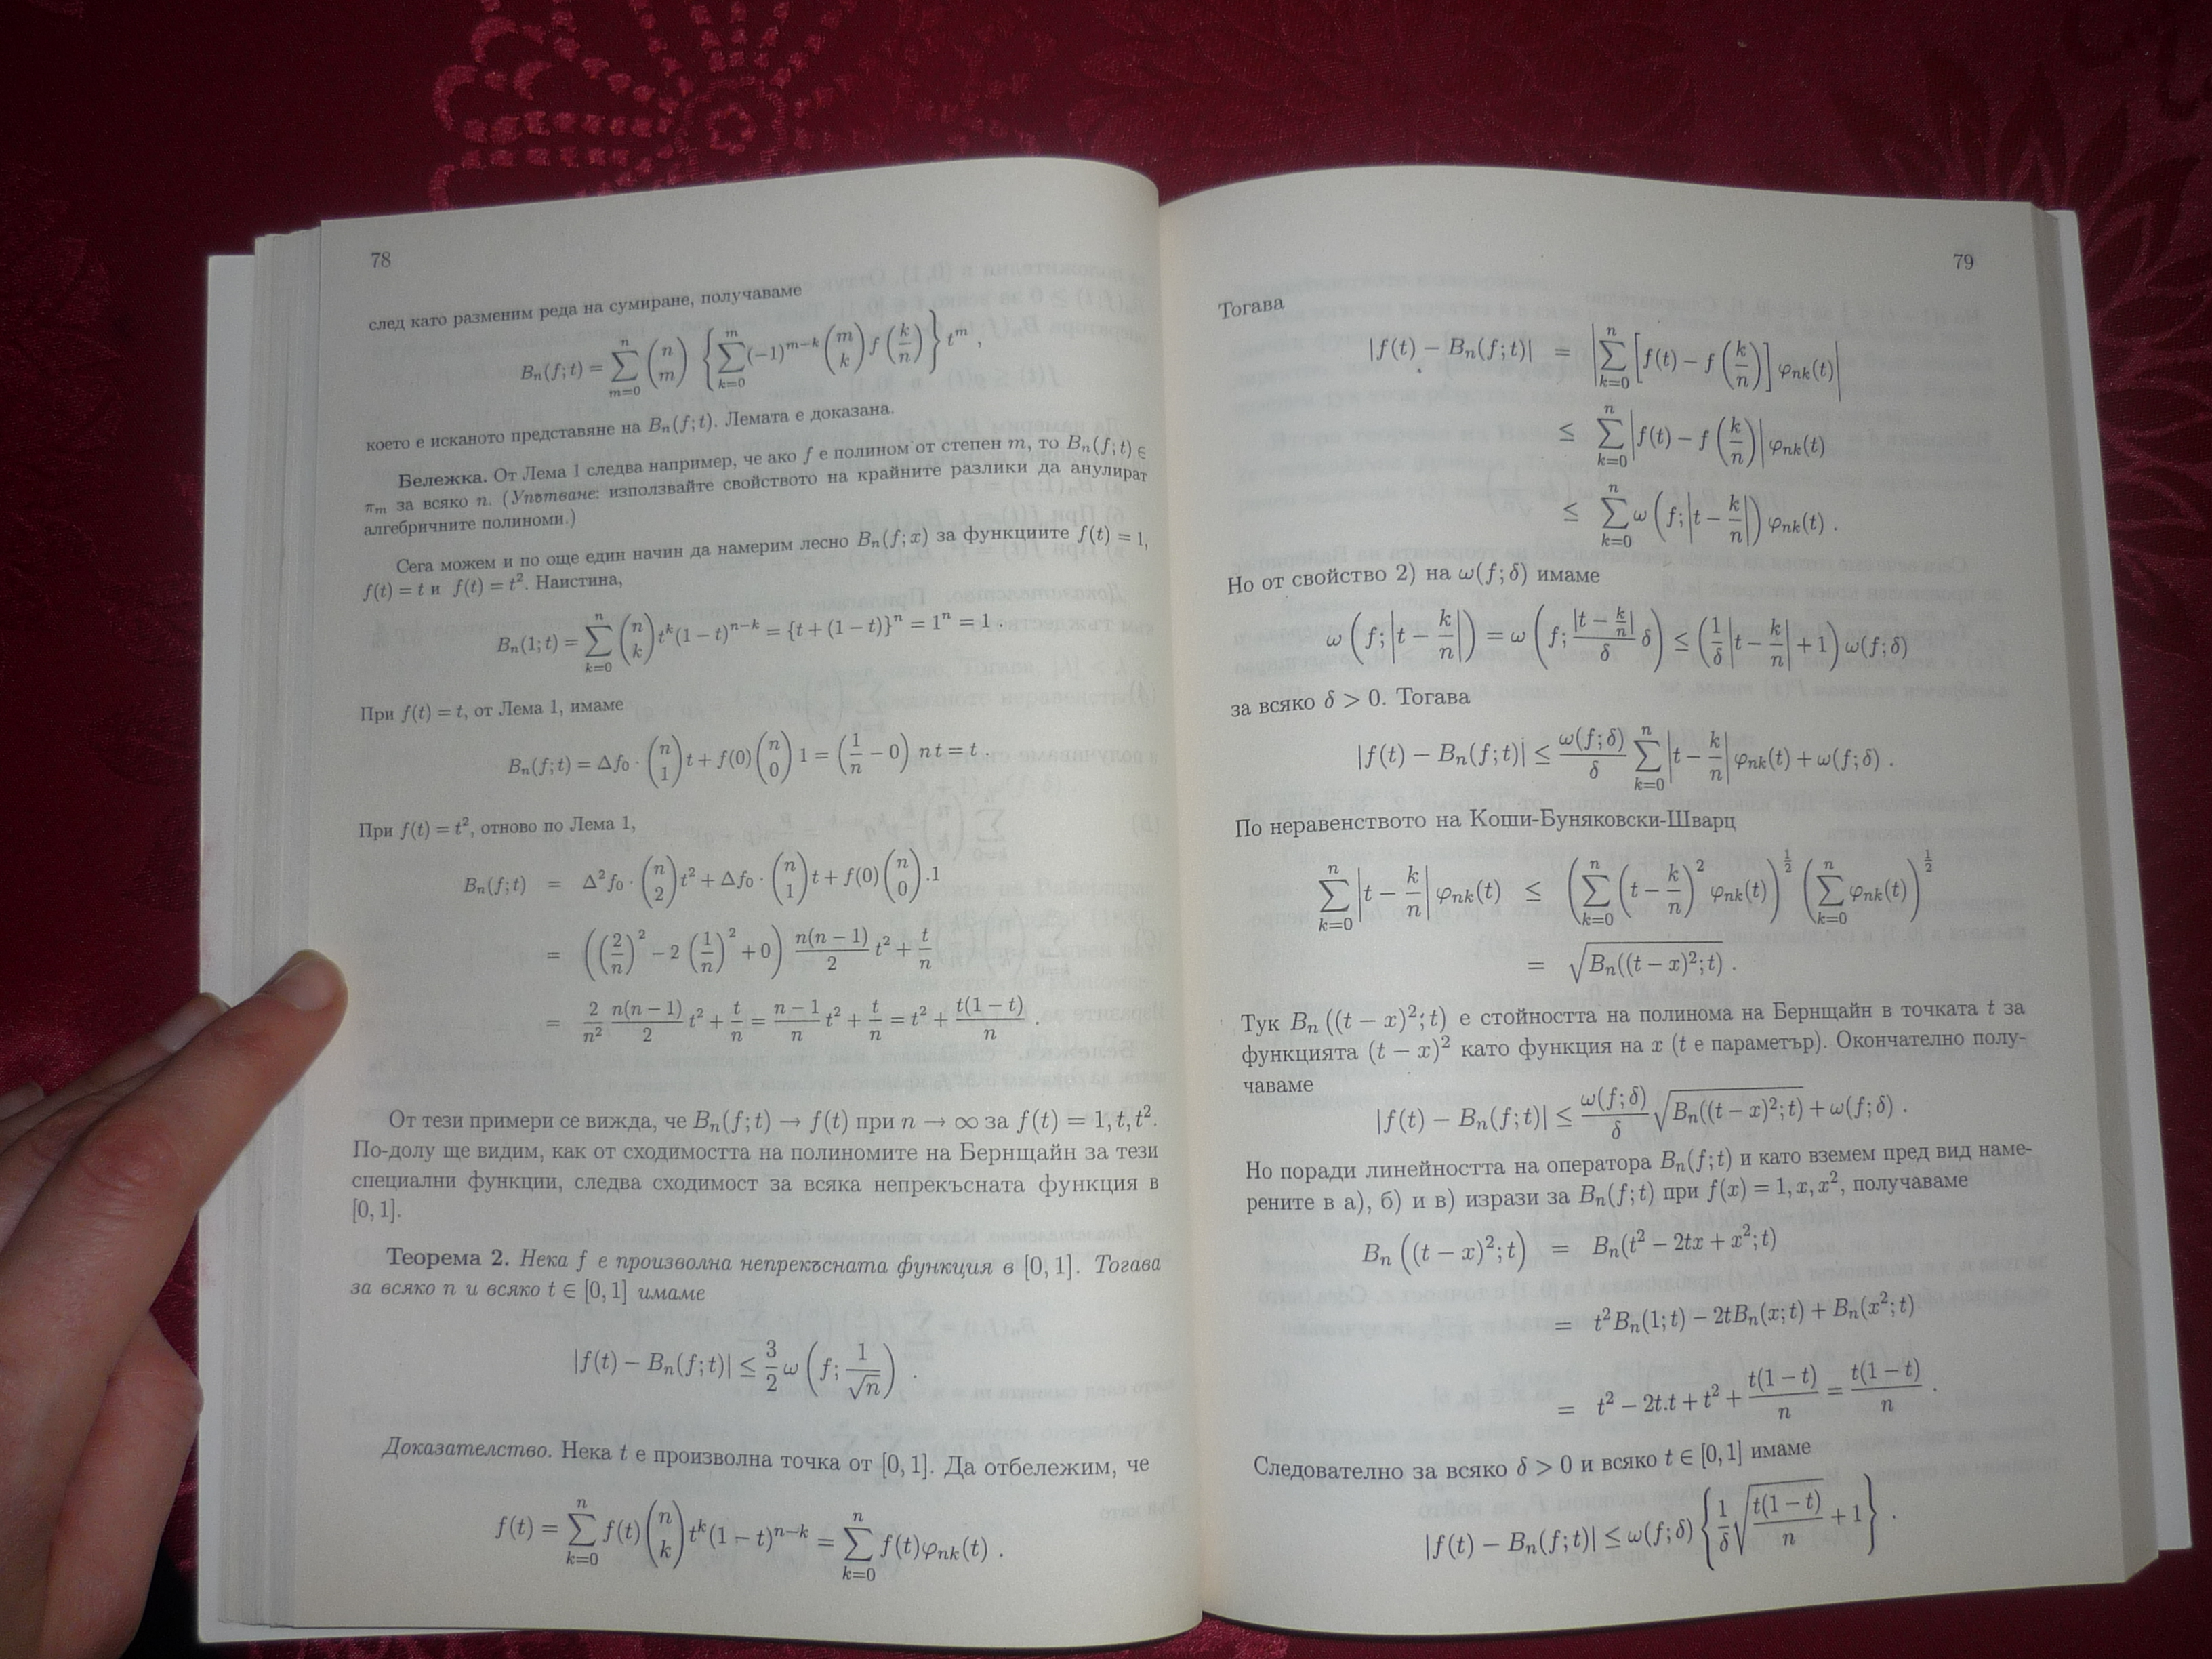 78
след като разменим реда на сумиране, получаваме
B_n(f;t) = \sum_{m=0}^{n} \binom{n}{m} \left\{ \sum_{k=0}^{m} (-1)^{m-k} \binom{m}{k} f\left(\frac{k}{n}\right) \right\} t^m ,
което е исканото представяне на B_n(f;t). Лемата е доказана.
Бележка. От Лема 1 следва например, че ако f е полином от степен m, то B_n(f;t) ∈
π_m за всяко n. (Упътване: използвайте свойството на крайните разлики да анулират
алгебричните полиноми.)
Сега можем и по още един начин да намерим лесно B_n(f;x) за функциите f(t) = 1,
f(t) = t и f(t) = t^2. Наистина,
B_n(1;t) = \sum_{k=0}^{n} \binom{n}{k} t^k (1-t)^{n-k} = \{t+(1-t)\}^n = 1^n = 1 .
При f(t) = t, от Лема 1, имаме
B_n(f;t) = Δf_0 · \binom{n}{1} t + f(0) \binom{n}{0} 1 = \left(\frac{1}{n} - 0\right) nt = t .
При f(t) = t^2, отново по Лема 1,
B_n(f;t) = Δ^2 f_0 · \binom{n}{2} t^2 + Δf_0 · \binom{n}{1} t + f(0) \binom{n}{0} .1
= \left( \left(\frac{2}{n}\right)^2 - 2 \left(\frac{1}{n}\right)^2 + 0 \right) \frac{n(n-1)}{2} t^2 + \frac{t}{n}
= \frac{2}{n^2} \frac{n(n-1)}{2} t^2 + \frac{t}{n} = \frac{n-1}{n} t^2 + \frac{t}{n} = t^2 + \frac{t(1-t)}{n} .
От тези примери се вижда, че B_n(f;t) → f(t) при n → ∞ за f(t) = 1, t, t^2.
По-долу ще видим, как от сходимостта на полиномите на Бернщайн за тези
специални функции, следва сходимост за всяка непрекъсната функция в
[0, 1].
Теорема 2. Нека f е произволна непрекъсната функция в [0, 1]. Тогава
за всяко n и всяко t ∈ [0, 1] имаме
|f(t) - B_n(f;t)| ≤ \frac{3}{2} ω \left( f; \frac{1}{\sqrt{n}} \right) .
Доказателство. Нека t е произволна точка от [0, 1]. Да отбележим, че
f(t) = \sum_{k=0}^{n} f(t) \binom{n}{k} t^k (1-t)^{n-k} = \sum_{k=0}^{n} f(t) φ_{nk}(t) .
79
Тогава
|f(t) - B_n(f;t)| = \left| \sum_{k=0}^{n} \left[ f(t) - f\left(\frac{k}{n}\right) \right] φ_{nk}(t) \right|
≤ \sum_{k=0}^{n} \left| f(t) - f\left(\frac{k}{n}\right) \right| φ_{nk}(t)
≤ \sum_{k=0}^{n} ω \left( f; \left| t - \frac{k}{n} \right| \right) φ_{nk}(t) .
Но от свойство 2) на ω(f;δ) имаме
ω \left( f; \left| t - \frac{k}{n} \right| \right) = ω \left( f; \frac{|t - \frac{k}{n}|}{δ} δ \right) ≤ \left( \frac{1}{δ} \left| t - \frac{k}{n} \right| + 1 \right) ω(f;δ)
за всяко δ > 0. Тогава
|f(t) - B_n(f;t)| ≤ \frac{ω(f;δ)}{δ} \sum_{k=0}^{n} \left| t - \frac{k}{n} \right| φ_{nk}(t) + ω(f;δ) .
По неравенството на Коши-Буняковски-Шварц
\sum_{k=0}^{n} \left| t - \frac{k}{n} \right| φ_{nk}(t) ≤ \left( \sum_{k=0}^{n} \left( t - \frac{k}{n} \right)^2 φ_{nk}(t) \right)^{\frac{1}{2}} \left( \sum_{k=0}^{n} φ_{nk}(t) \right)^{\frac{1}{2}}
= \sqrt{B_n((t-x)^2;t)} .
Тук B_n ((t-x)^2;t) е стойността на полинома на Бернщайн в точката t за
функцията (t-x)^2 като функция на x (t е параметър). Окончателно полу-
чаваме
|f(t) - B_n(f;t)| ≤ \frac{ω(f;δ)}{δ} \sqrt{B_n((t-x)^2;t)} + ω(f;δ) .
Но поради линейността на оператора B_n(f;t) и като вземем пред вид наме-
рените в а), б) и в) изрази за B_n(f;t) при f(x) = 1, x, x^2, получаваме
B_n \left( (t-x)^2;t \right) = B_n(t^2 - 2tx + x^2;t)
= t^2 B_n(1;t) - 2tB_n(x;t) + B_n(x^2;t)
= t^2 - 2t.t + t^2 + \frac{t(1-t)}{n} = \frac{t(1-t)}{n} .
Следователно за всяко δ > 0 и всяко t ∈ [0, 1] имаме
|f(t) - B_n(f;t)| ≤ ω(f;δ) \left\{ \frac{1}{δ} \sqrt{\frac{t(1-t)}{n}} + 1 \right\} .